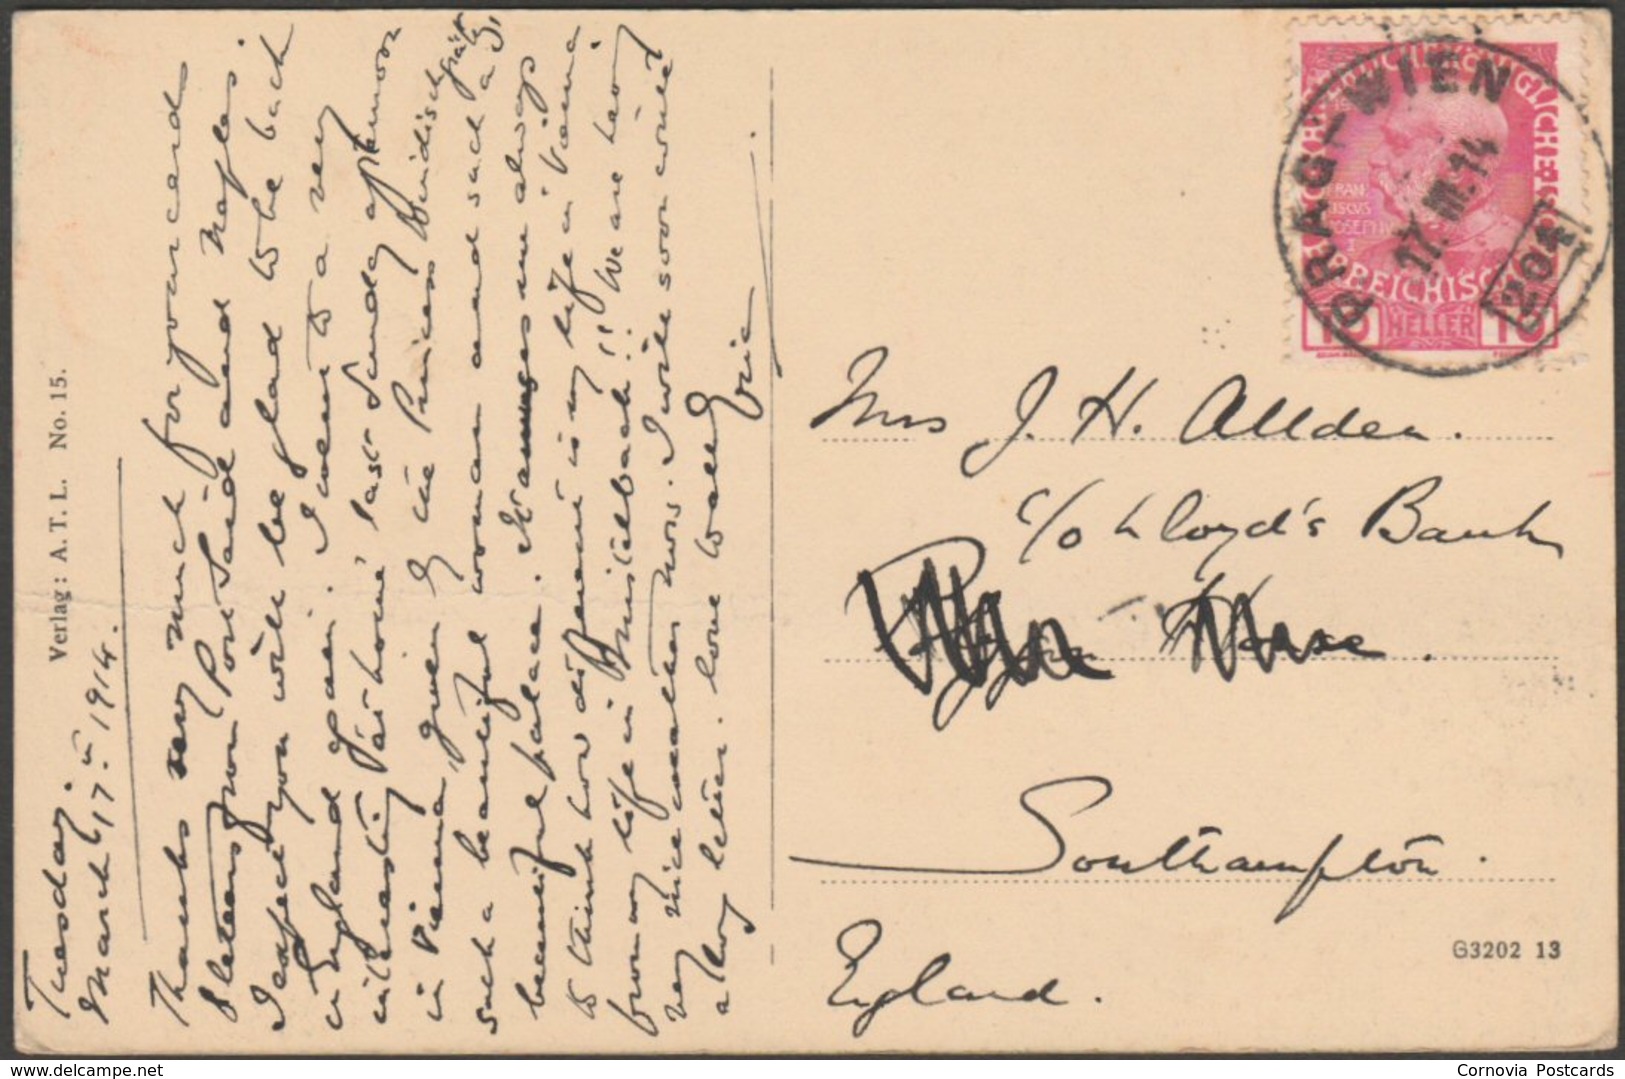 Tuesday.
March 17th 1914.
Thanks very much for your cards
& letters from Port Said and Naples.
I expect you will be glad to be back
in England again. I went to a very
interesting "at home" last Sunday afternoon
in Vienna, given by the Princess Windischgrätz,
such a beautiful woman and such a
beautiful palace. It amuses me always
to think how different is my life in Vienna
from my life in Mittelbach!! We are having
very nice weather now. I will soon write
a long letter. love to all
Eric
Verlag: A. T. L. No. 15.
PRAG-WIEN
17. III. 14
204
FRANCISCUS
JOSEPHUS
I
HELLER
Mrs J. H. Allden.
c/o Lloyd's Bank
Southampton.
England.
G3202 13
delcampe.net
Cornovia Postcards